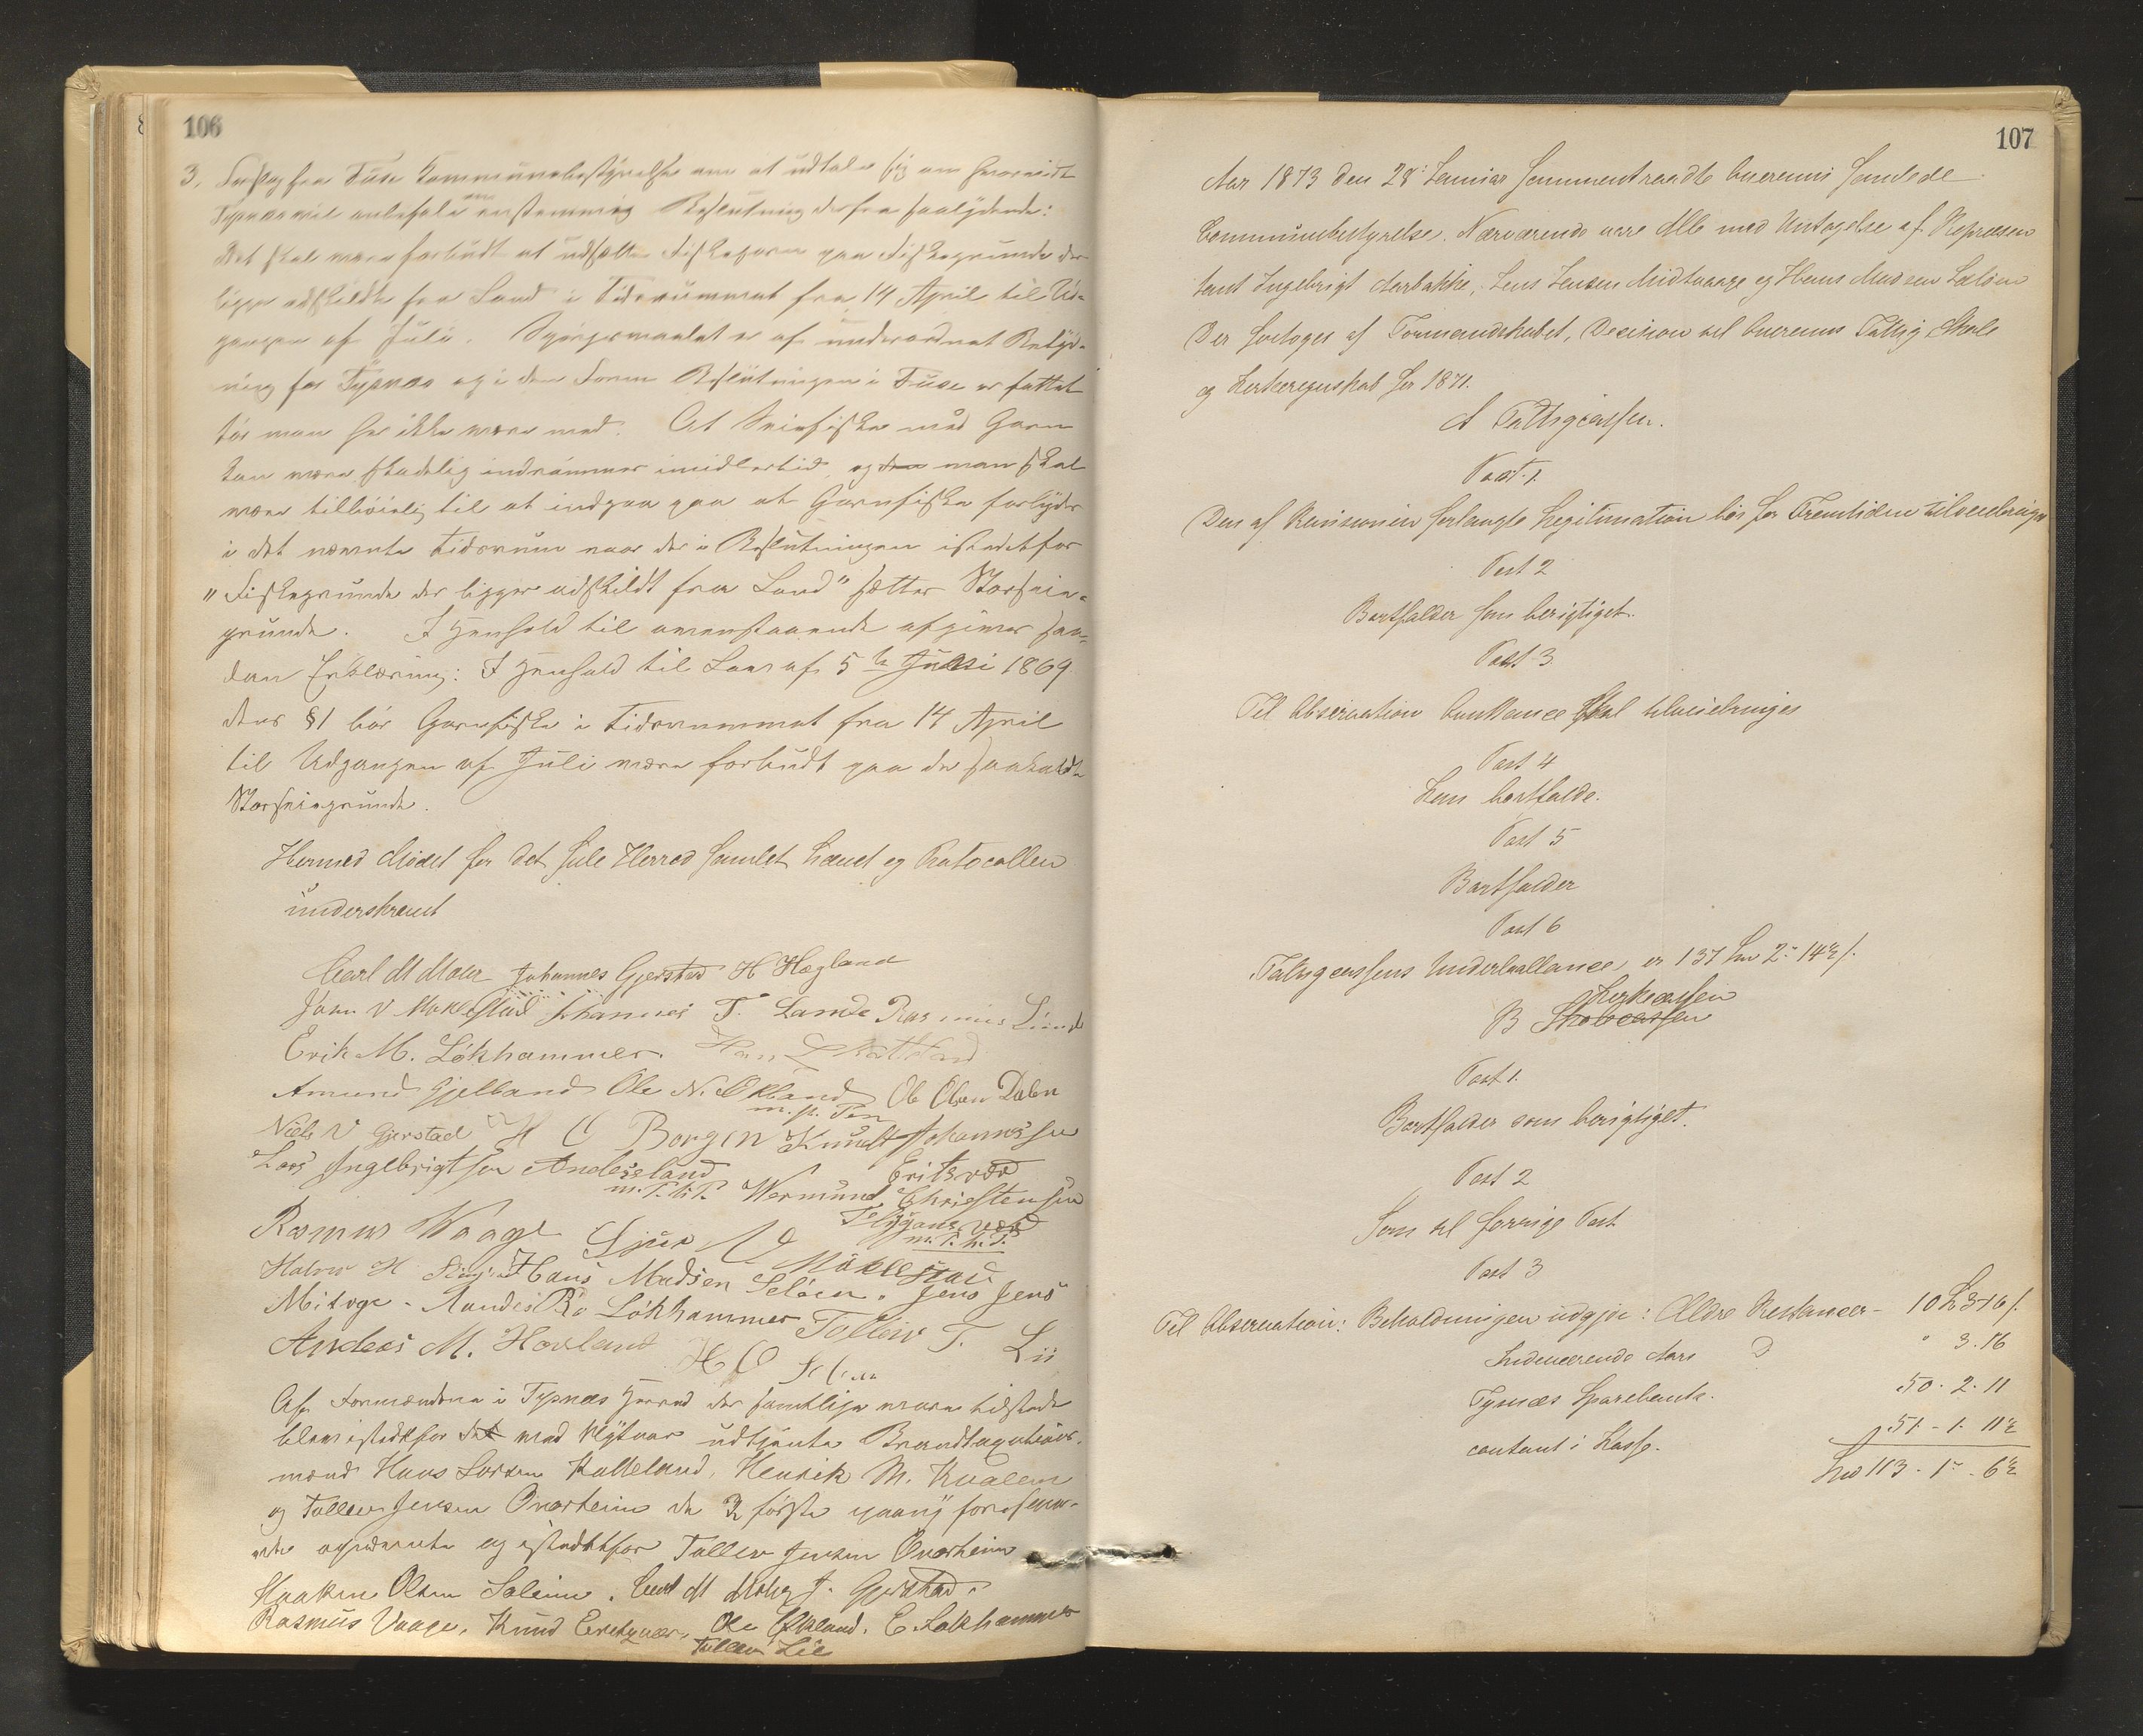 106
3. Forslag fra Fuse Kommunebestyrelse om at udtale sig om hvorvidt
Tysnæs vil anbefale en enstemmig Beslutning derfra saalydende:
Det skal være forbudt at udsætte Fiskegarn paa Fiskegrunde der
ligger adskildt fra Land i Tidsrummet fra 14 April til Ud-
gangen af Juli. Spørgsmaalet er af underordnet Betyd-
ning for Tysnæs og i den Form Beslutningen i Fuse er fattet
tør man her ikke være med. At Seiefiske med Garn
kan være skadelig indrømmes imidlertid og man skal
være tilbøielig til at indgaa paa at Garnfiske forbydes
i det nævnte Tidsrum naar der i Beslutningen istedetfor
"Fiskegrunde der ligger adskildt fra Land" sættes Storseie-
grunde. I Henhold til ovenstaaende afgives saa-
dan Erklæring: I Henhold til Lov af 5te Juni 1869
dens §1 bør Garnfiske i Tidsrummet fra 14 April
til Udgangen af Juli være forbudt paa de saakaldte
Storseiegrunde.
Hermed Mødet for det hele Herred samlet hævet og Protocollen
underskrevet
Carl M Mohr Johannes Gjerstad H Hægland
John V Møklestad Johannes T. Lande Rasmus Lunde
Erik M. Løkhammer. Hans Kalleland
Amund Gjelland Ole N. Økland Ole Olsen Dalen
m. p. Pen
Niels V Gjerstad H C Borgen Knudt Johannessen
Lars Ingebrigtsen Andersland Eritsvær
m. P. h. P. Wermund Christensen
Rasmus Waage Sjur N Møklestad
m. P. h. P.
Hans Madsen Seløen. Jens Jens
Mitvge - Anders Bø Løkhammer Tollew T. Lii
Anders M. Hovland
Af Formændene i Tysnæs Herred der samtlige vare tilstede
blev istedetfor de ved Nytaar udtjente Brandtaxations-
mænd Hans Larsen Kalleland, Henrik M. Kvalem
og Tollew Jensen Onarheim de 2 første paany for
opnævnte og istedetfor Tollew Jensen Onarheim
Haaken Olsen Soleim. Carl M Mohr J. Gjerstad.
Rasmus Vaage, Knud Eritzvær, Ole Økland. E. Løkhammer
Tollew Lie
107
Aar 1873 den 28 Januar sammentraadte Onerems Sends de
Communebestyrelse. Nærværende vare Alle med Undtagelse af Repræsen
tant Ingebrigt Aarbakke, Jens Jensen Midtvaage og Hans Madsen Seløen
Der foretoges af Formandskabet, Decision til Onerems Fattig Skole
og Kirkeregnskab for 1871.
A Fattigcassen.
Post. 1
Den af Revisionen forlangte Legitimation bør for Fremtiden tilveiebringes
Post 2
Bortfalder som berigtiget.
Post 3
Til Observation Skal tilveiebringes
Post 4
Kan bortfalde.
Post 5
Bortfalder
Post 6
Fattigcassens Underballance er 137 Spd 2 - 14½ s.
Kirkecassen
B Skolecassen
Post 1.
Bortfalder som berigtiget.
Post 2
Som til forrige Post
Post 3
Til Observation: Beholdningen udgjør: Ældre Restancer - 10 Spd 3 - 16 s.
Indeværende Aars D " 3. 16
Tysnæs Sparebank. 50 - 2 - 11
contant i Kasse. 51 - 1 - 11½
Spd 113 - 1 - 6½